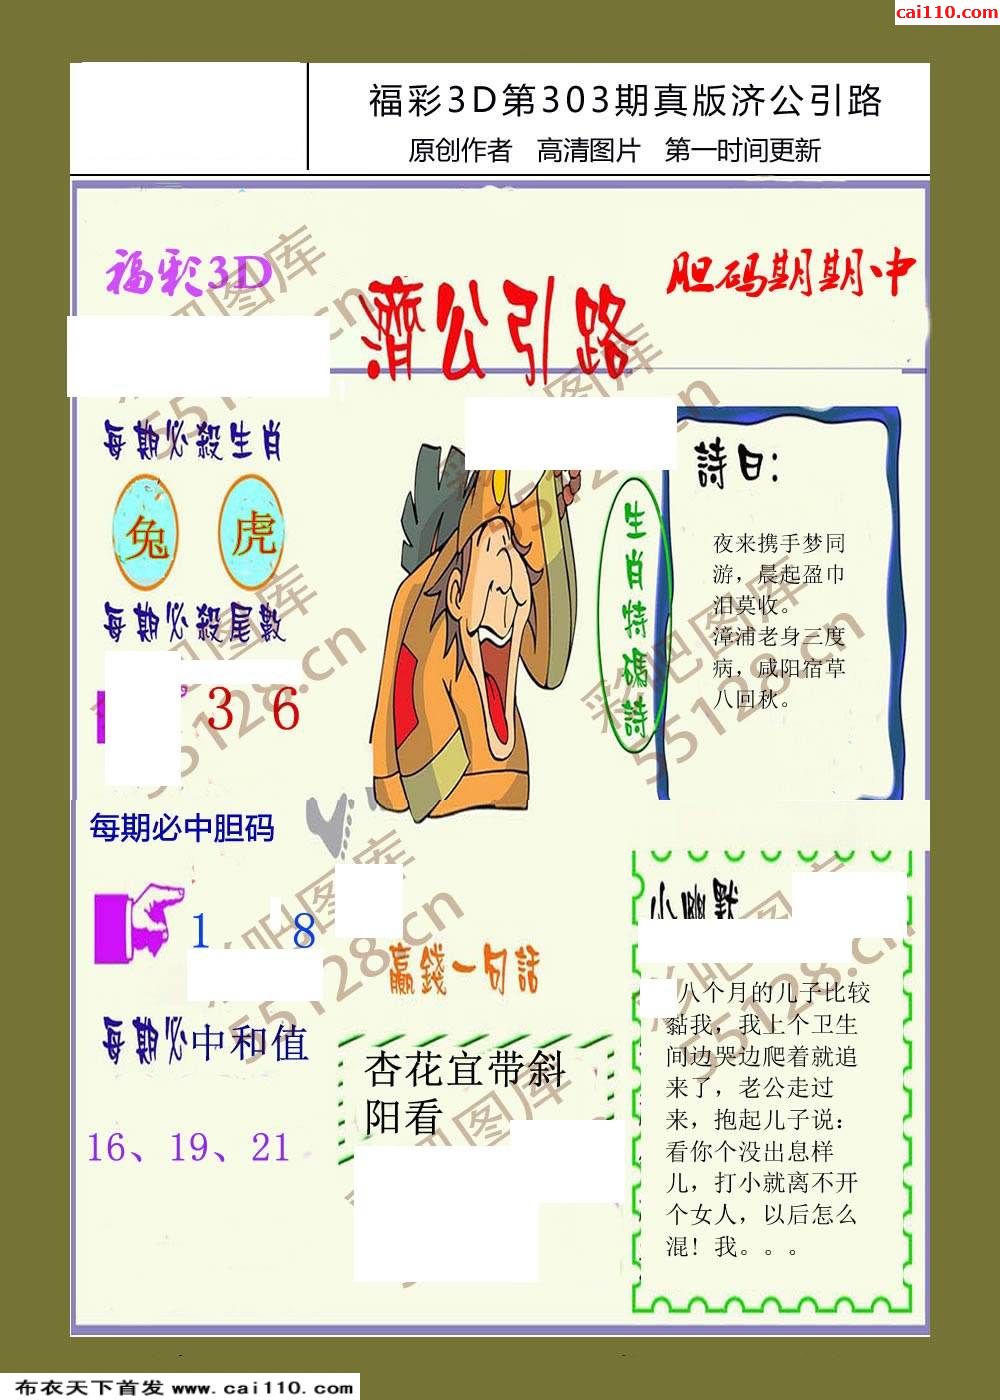 cai110.com
福彩3D第303期真版济公引路
原创作者 高清图片 第一时间更新
福彩3D
胆码期期中
濟公引路
每期必殺生肖
兔 虎
每期必殺尾數
3 6
每期必中胆码
1 8
每期必中和值
16、19、21
生肖特碼詩
詩曰:
夜来携手梦同
游，晨起盈巾
泪莫收。
漳浦老身三度
病，咸阳宿草
八回秋。
赢錢一句話
杏花宜带斜
阳看
小幽默
八个月的儿子比较
黏我，我上个卫生
间边哭边爬着就追
来了，老公走过
来，抱起儿子说：
看你个没出息样
儿，打小就离不开
个女人，以后怎么
混！我。。。
彩吧图库
55128.cn
布衣天下首发 www.cai110.com